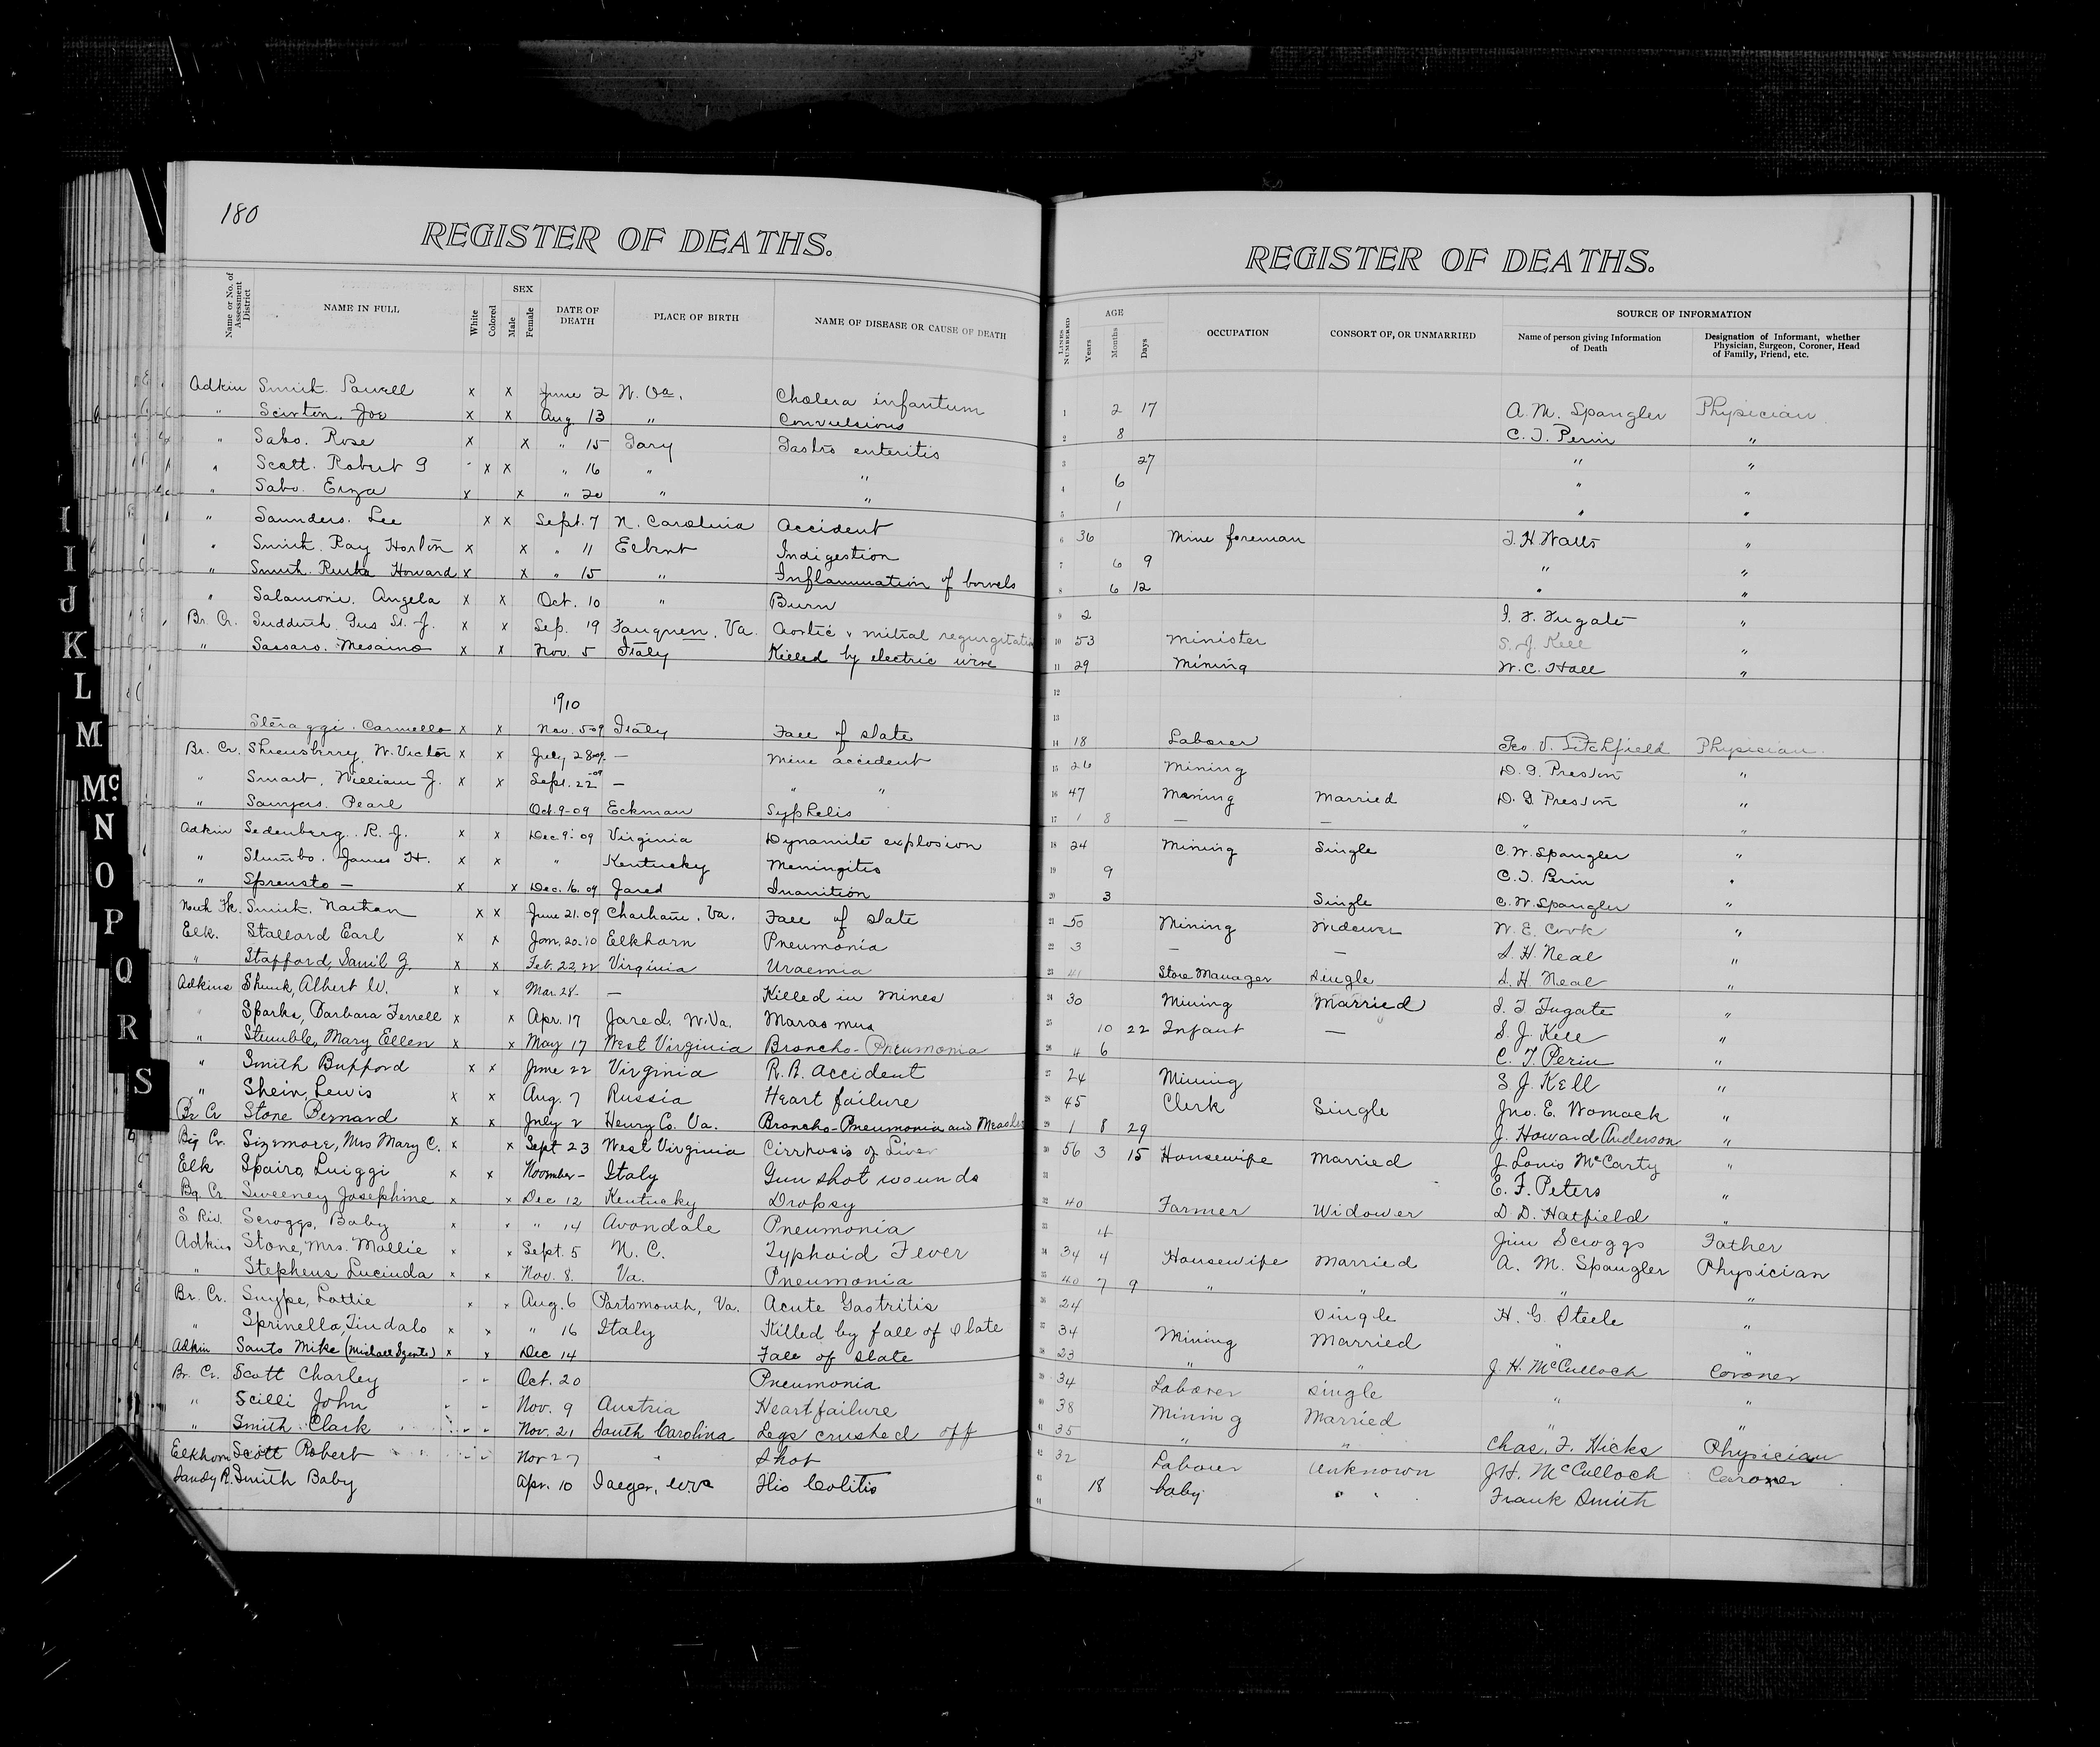 180
REGISTER OF DEATHS.
Name or No. of Assessment District
NAME IN FULL
White
Colored
SEX
Male
Female
DATE OF DEATH
PLACE OF BIRTH
NAME OF DISEASE OR CAUSE OF DEATH
Adkin Smith. Powell x x June 2 W. Va. Cholera infantum
" Joe x x Aug. 13 " Convulsions
" Sabo. Rose x x " 15 Gary Gastro enteritis
" Scott. Robert G x x " 16 " "
" Sabo. x x " 20 " "
" Saunders. Lee x x Sept. 7 N. Carolina Accident
" Smith. Ray Horton x x " 11 Elbert Indigestion
" Smith. Howard x x " 15 " Inflammation of bowels
" Salamoni. Angela x x Oct. 10 " Burn
Br. Cr. Sudduth. Gus St. J. x x Sep. 19 Va. Aortic & mitral regurgitation
" Sassaro. Mesaino x x Nov. 5 Italy Killed by electric wire
1910
Carmello x x Nov. 5-09 Italy Fall of slate
Br. Cr. Shrewsbrry, W. Victor x x July 28-09. — Mine accident
" Smart, William J. x x Sept. 22-09 — " "
" Sawyers. Pearl Oct. 9-09 Eckman Syphelis
Adkin Sedenberg. R. J. x x Dec 9-09 Virginia Dynamite explosion
" James H. x x " Kentucky Meningitis
" Sprensto — x x Dec. 16. 09 Jared Inanition
North Fk. Smith. Nathan x x June 21. 09 Chatham. Va. Fall of slate
Elk. Stallard Earl x x Jan. 20. 10 Elkhorn Pneumonia
" Stafford, x x Feb. 22 Virginia Uraemia
Adkins Shunk, Albert W. x x Mar 28- — Killed in mines
" Sparks, Barbara Ferrell x x Apr. 17 Jared. W.Va. Marasmus
" Stumble, Mary Ellen x x May 17 West Virginia Broncho-Pneumonia
" Smith Bufford x x June 22 Virginia R. R. Accident
" Shein, Lewis x x Aug. 7 Russia Heart failure
Br Cr Stone Bernard x x July 2 Henry Co. Va. Broncho-Pneumonia and Measles
Big Cr. Sizemore, Mrs Mary C. x x Sept 23 West Virginia Cirrhosis of Liver
Elk Spairo, Luiggi x x Noomber- Italy Gun shot wounds
Bg. Cr. Sweeney Josephine x x Dec 12 Kentucky Dropsy
S. Riv. Scroggs, Baby x x " 14 Avondale Pneumonia
Adkins Stone, Mrs. Mollie x x Sept. 5 N. C. Typhoid Fever
" Stephens Lucinda x x Nov. 8. Va. Pneumonia
Br. Cr. Snype, Lottie x x Aug. 6 Partsmouth, Va. Acute Gastritis
" Sprinella, Tindalo x x " 16 Italy Killed by fall of slate
Adkin Santo Mike x x Dec 14 Fall of slate
Br. Cr. Scott Charley - - Oct. 20 Pneumonia
" Scilli John - - Nov. 9 Austria Heart failure
" Smith Clark - - Nov. 21 South Carolina Legs crushed off
Elkhorn Scott Robert - - Nov 27 " Shot
Sandy R. Smith Baby Apr. 10 Iaeger, W.Va Colitis
REGISTER OF DEATHS.
LINES NUMBERED
AGE
Years
Months
Days
OCCUPATION
CONSORT OF, OR UNMARRIED
SOURCE OF INFORMATION
Name of person giving Information of Death
Designation of Informant, whether Physician, Surgeon, Coroner, Head of Family, Friend, etc.
1 2 17 A. M. Spangler Physician
2 8 C. T. Perin "
3 27 " "
4 6 " "
5 1 " "
6 36 Mine foreman J. H. Watts "
7 6 9 " "
8 6 12 " "
9 2 I. F. Fugate "
10 53 Minister S. J. Kell "
11 29 Mining W. C. Hall "
12
13
14 18 Laborer Geo. V. Litchfield Physician
15 26 Mining D. G. Preston "
16 47 Mining Married D. G. Preston "
17 1 8 — — " "
18 24 Mining Single C. W. Spangler "
19 9 C. T. Perin "
20 3 Single C. W. Spangler "
21 50 Mining Widower W. E. Cook "
22 3 — — S. H. Neal "
23 Store Manager Single S. H. Neal "
24 30 Mining Married I. F. Fugate "
25 10 22 Infant — S. J. Kell "
26 4 6 C. T. Perin "
27 24 Mining S. J. Kell "
28 45 Clerk Single Jno. E. Womack "
29 1 8 29 J. Howard Anderson "
30 56 3 15 Housewife Married J. Louis McCarty "
31 E. F. Peters "
32 40 Farmer Widower D. D. Hatfield "
33 4 Jim Scroggs Father
34 34 4 Housewife Married A. M. Spangler Physician
35 40 7 9 " " " "
36 24 Single H. G. Steele "
37 34 Mining Married " "
38 23 " " J. H. McCulloch Coroner
39 34 Laborer Single " "
40 38 Mining Married " "
41 35 " " Chas. F. Hicks Physician
42 32 Laborer Unknown J. H. McCulloch Coroner
43 18 baby " " Frank Smith
44
I
I
J
K
L
M
Mc
N
O
P
Q
R
S